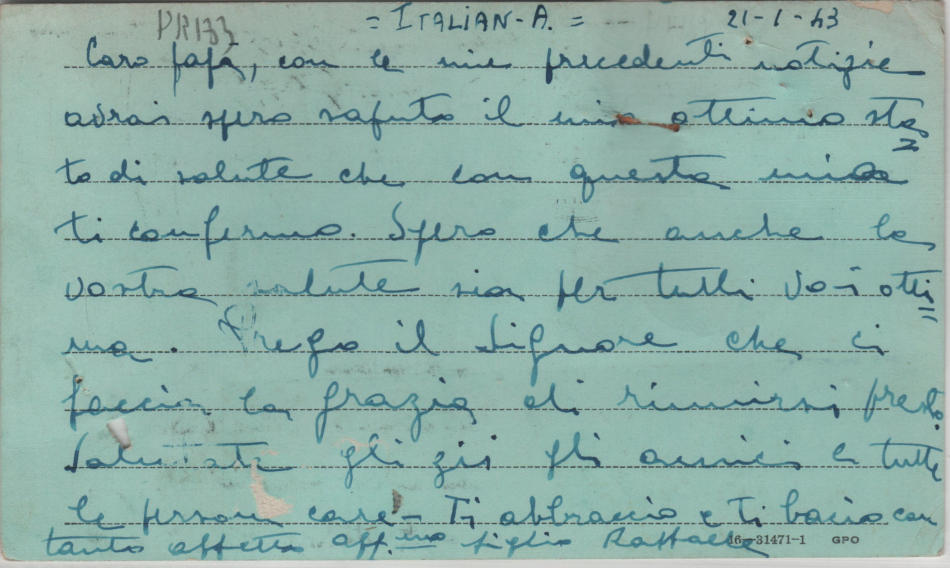 PR133
= ITALIAN - A. = 21-1-43
Caro papà, con le mie precedenti notizie
avrai spero saputo il mio ottimo sta=
to di salute che con questa mia
ti confermo. Spero che anche la
vostra salute sia per tutti voi otti=
ma. Prego il Signore che ci
faccia la grazia di riunirci presto.
Salutate gli zii gli amici e tutte
le persone care - Ti abbraccio e ti bacio con
tanto affetto aff.mo figlio Raffaele
16-31471-1 GPO